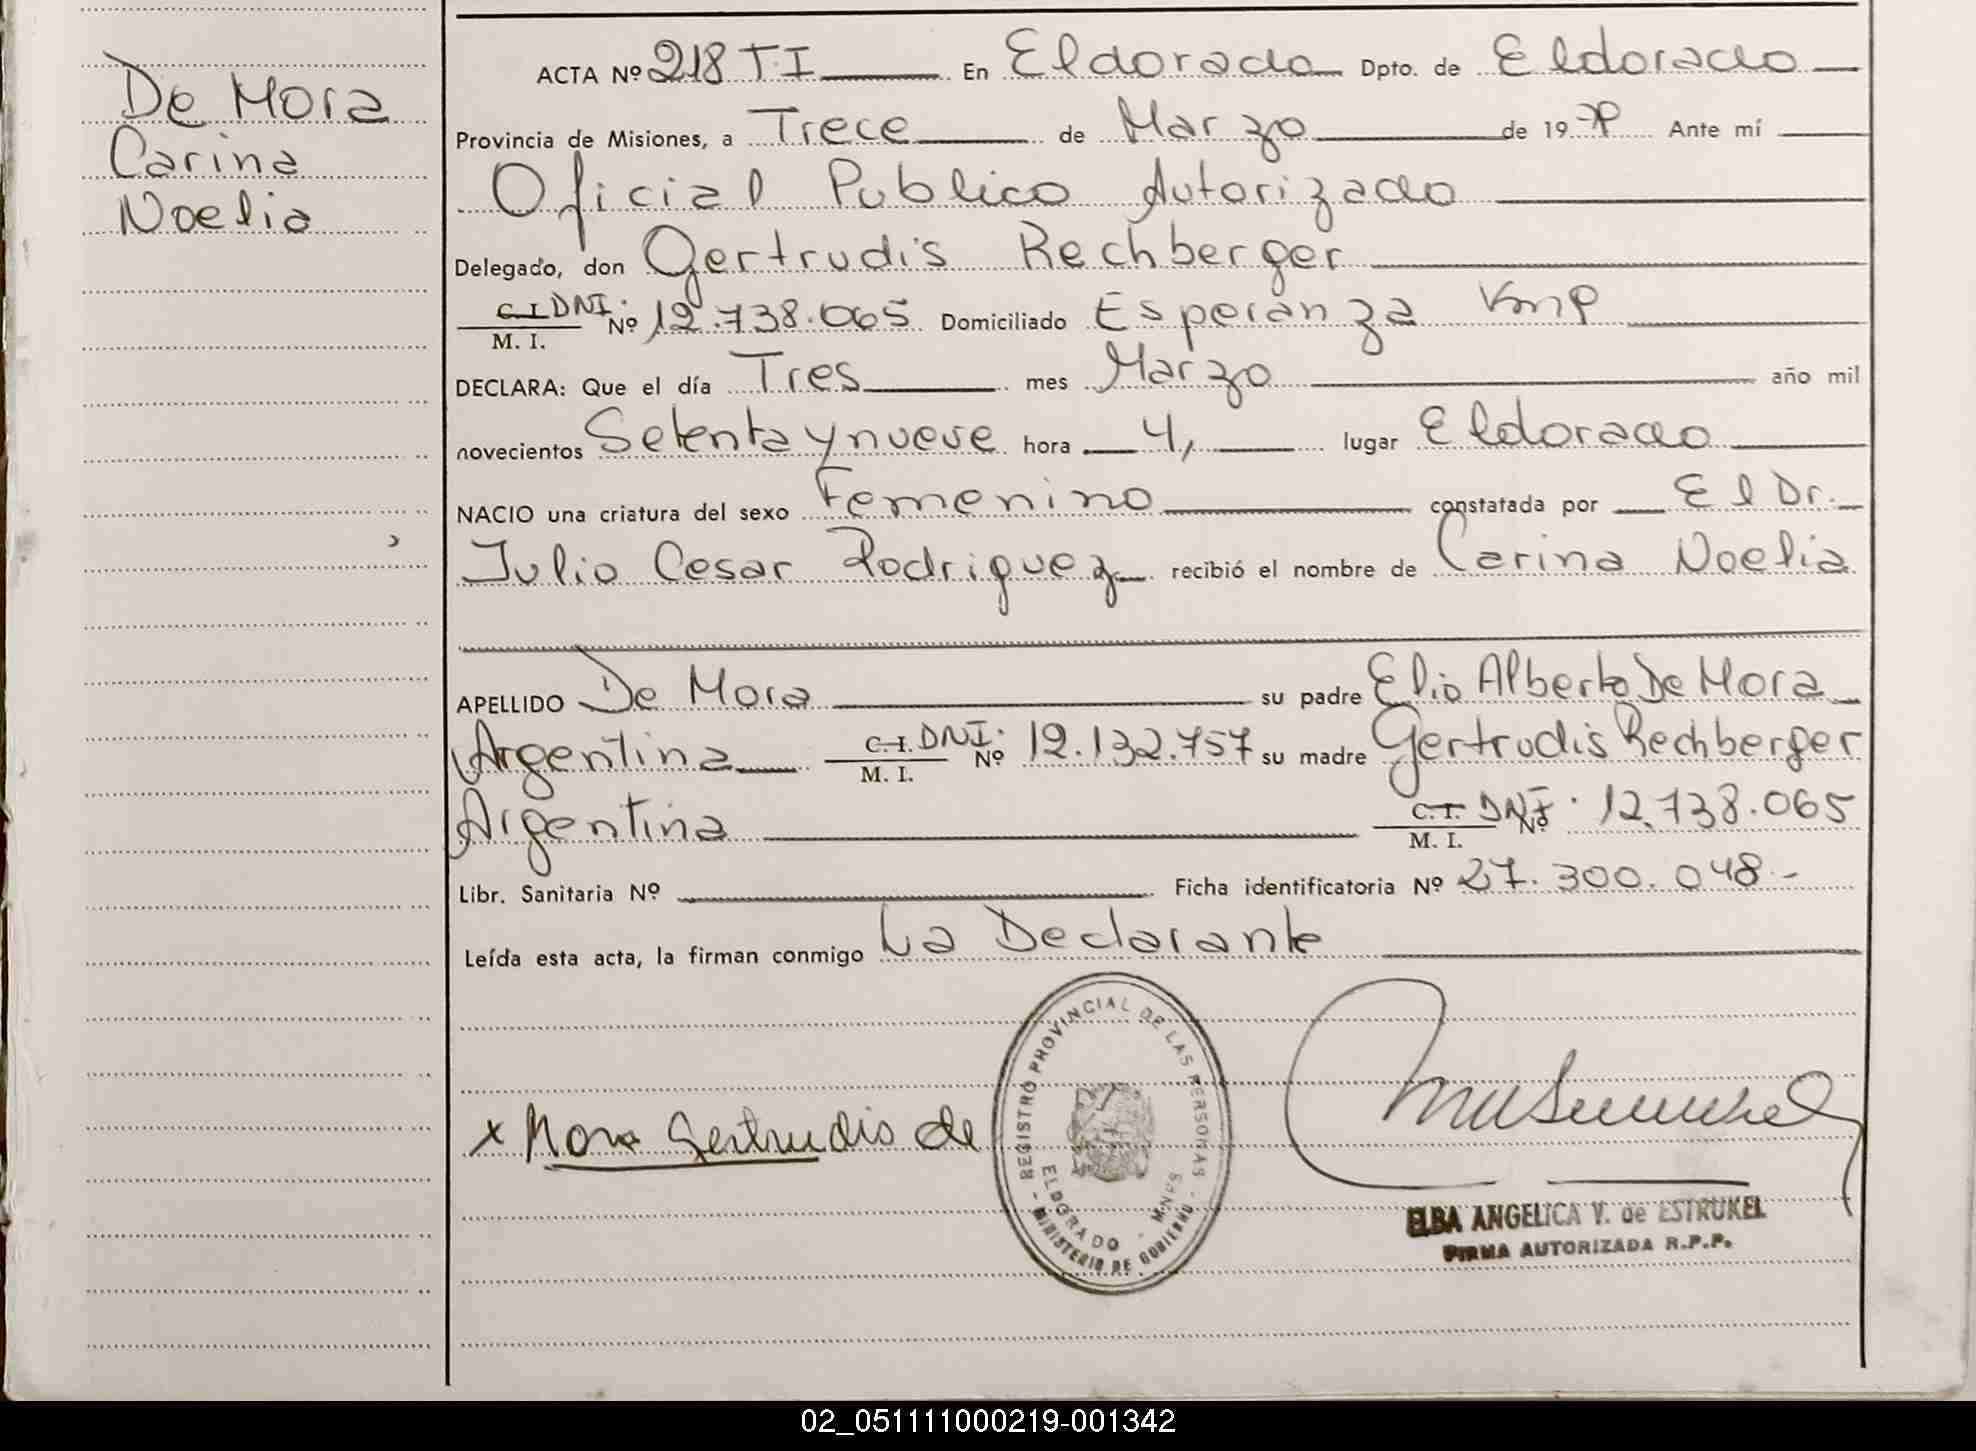 De Mora
Carina
Noelia
ACTA Nº 218 T I En Eldorado Dpto. de Eldorado
Provincia de Misiones, a Trece de Marzo de 1979 Ante mí
Oficial Publico Autorizado
Delegado, don Gertrudis Rechberger
C. I. DNI. Nº 12.738.065 Domiciliado Esperanza
M. I.
DECLARA: Que el día Tres mes Marzo año mil
novecientos Setenta y nueve hora 4, lugar Eldorado
NACIO una criatura del sexo Femenino constatada por El Dr.
Julio Cesar Rodriguez recibió el nombre de Carina Noelia
APELLIDO De Mora su padre Elio Alberto De Mora
Argentina C. I. DNI. Nº 12.132.757 su madre Gertrudis Rechberger
M. I.
Argentina C. I. DNI. Nº 12.738.065
M. I.
Libr. Sanitaria Nº Ficha identificatoria Nº 27.300.048-
Leída esta acta, la firman conmigo La Declarante
x Mora Gertrudis de
- REGISTRO PROVINCIAL DE LAS PERSONAS -
ELDORADO - MNES
MINISTERIO DE GOBIERNO
ELBA ANGELICA V. de ESTRUKEL
FIRMA AUTORIZADA R.P.P.
02_051111000219-001342